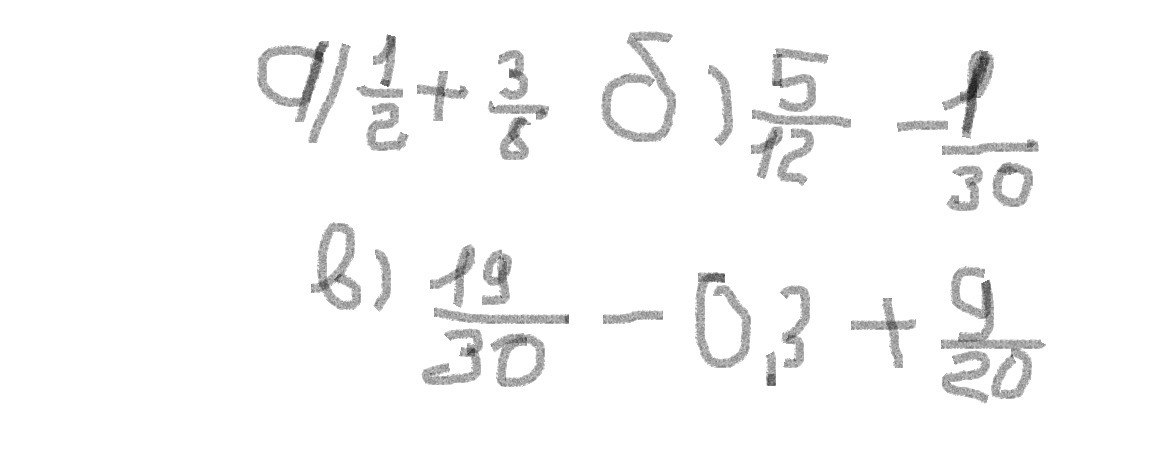 а) 1/2 + 3/8 б) 5/12 - 1/30
в) 19/30 - 0,3 + 9/20